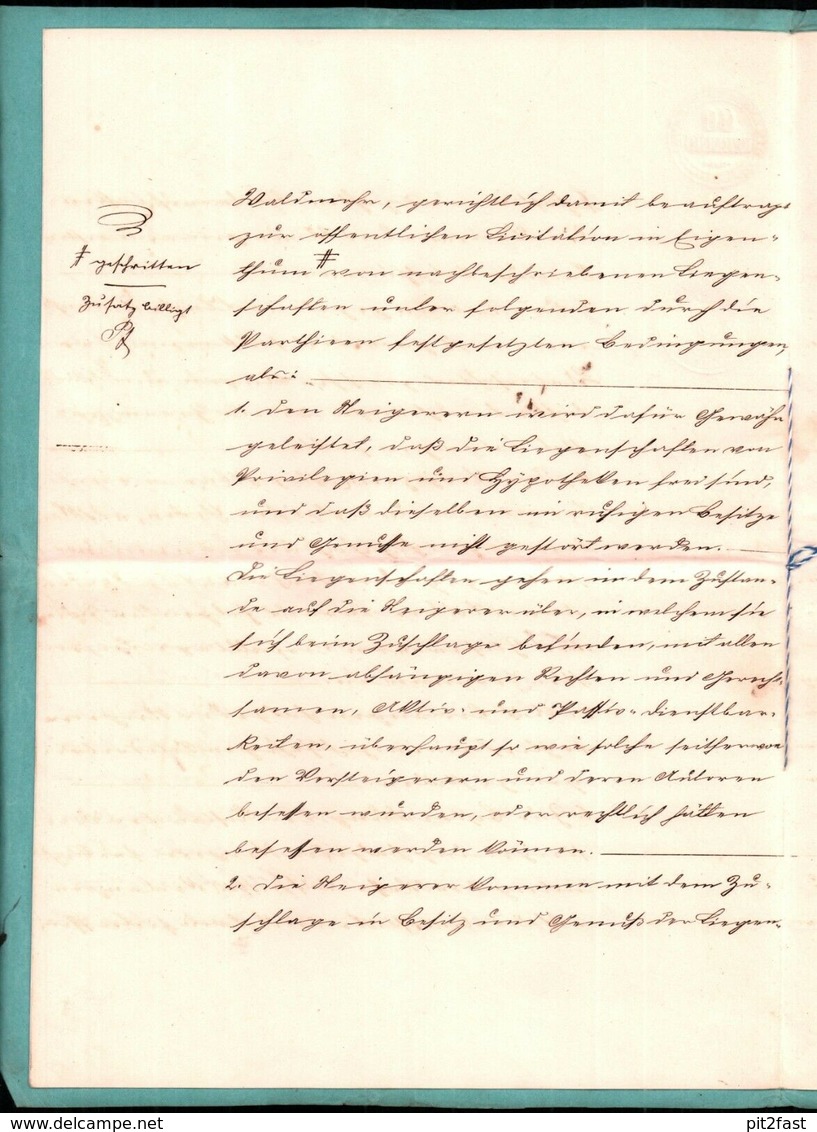 # geschritten
Zusatz billigt
Waldmohr, gerichtlich damit beauftragt
zur öffentlichen Licitation in Eigen-
thum # von nachbeschriebenen Liegen-
schaften unter folgenden durch die
Parthieen festgesetzten Bedingungen,
als:
1. Den Steigerern wird dafür Gewähr
geleistet, daß die Liegenschaften von
Privilegien und Hypotheken frei sind,
und daß dieselben im ruhigen Besitze
und Genusse nicht gestört werden.
Die Liegenschaften gehen in dem Zustan-
de auf die Steigerer über, in welchem sie
sich beim Zuschlage befinden, mit allen
davon abhängigen Rechten und Gerecht-
samen, Aktiv- und Passiv-dienstbar-
keiten, überhaupt so wie solche seither von
den Versteigerern und deren Autoren
besessen wurden, oder rechtlich hätten
besessen werden können.
2. Die Steigerer kommen mit dem Zu-
schlage in Besitz und Genuß der Liegen-
www.delcampe.net
pit2fast